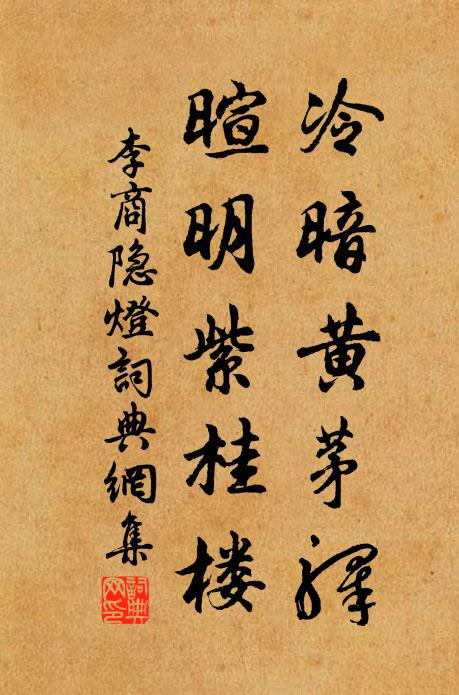 冷暗黄茅驿
暄明紫桂楼
李商隐燈詞典網集
詞典网印